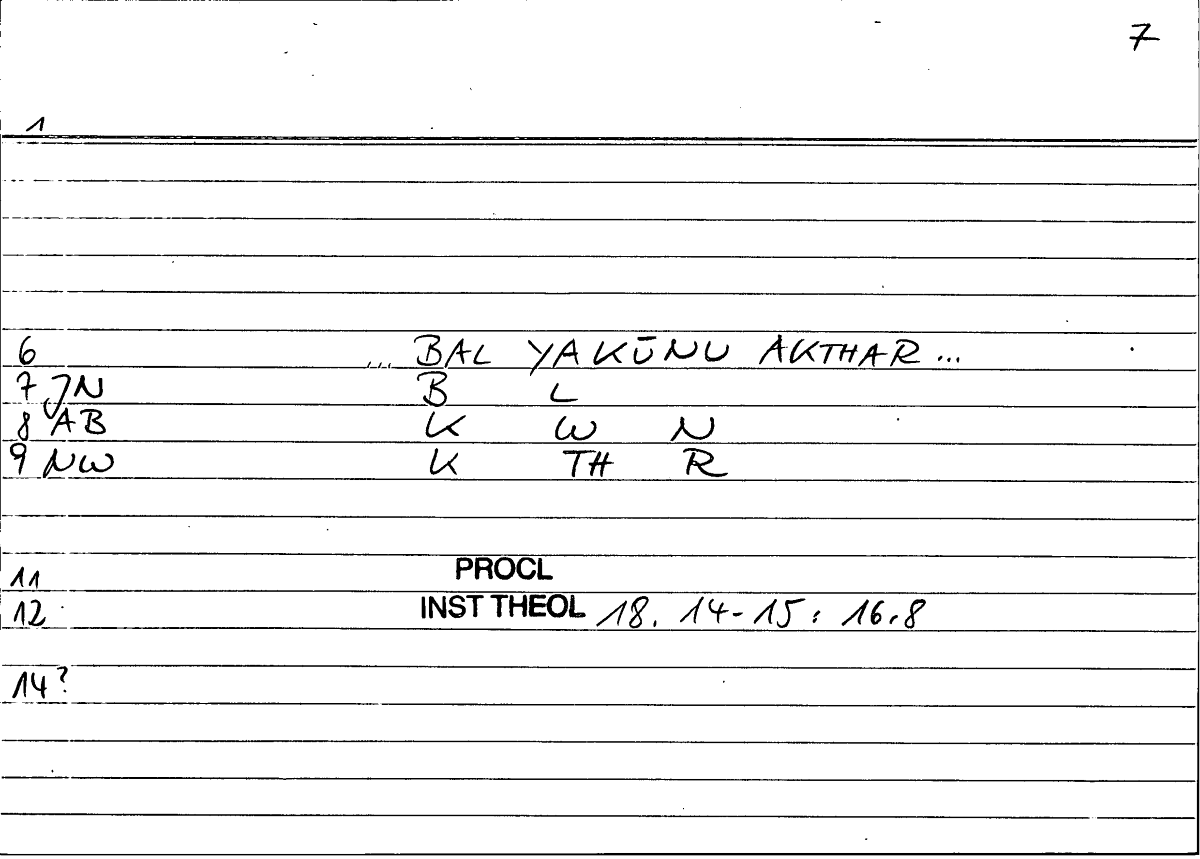 7
1
6 ... BAL YAKŪNU AKTHAR ...
7 JN B L
8 AB K W N
9 NW K TH R
11 PROCL
12 INST THEOL 18. 14-15 : 16.8
14?